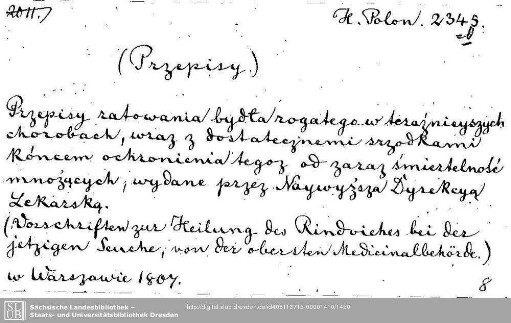 2011.)
H. Polon. 2345.
(Przepisy.)
Przepisy ratowania bydła rogatego w teraźnieyszych
chorobach, wraz z dostatecznemi srzodkami
końcem ochronienia tegoż od zaraz śmiertelność
mnożących, wydane przez Naywyższą Dyrekcyą
Lekarską.
(Vorschriften zur Heilung des Rindviehes bei der
jetzigen Seuche, von der obersten Medicinalbehörde.)
w Warszawie 1807.
8
SLUB
Sächsische Landesbibliothek –
Staats- und Universitätsbibliothek Dresden